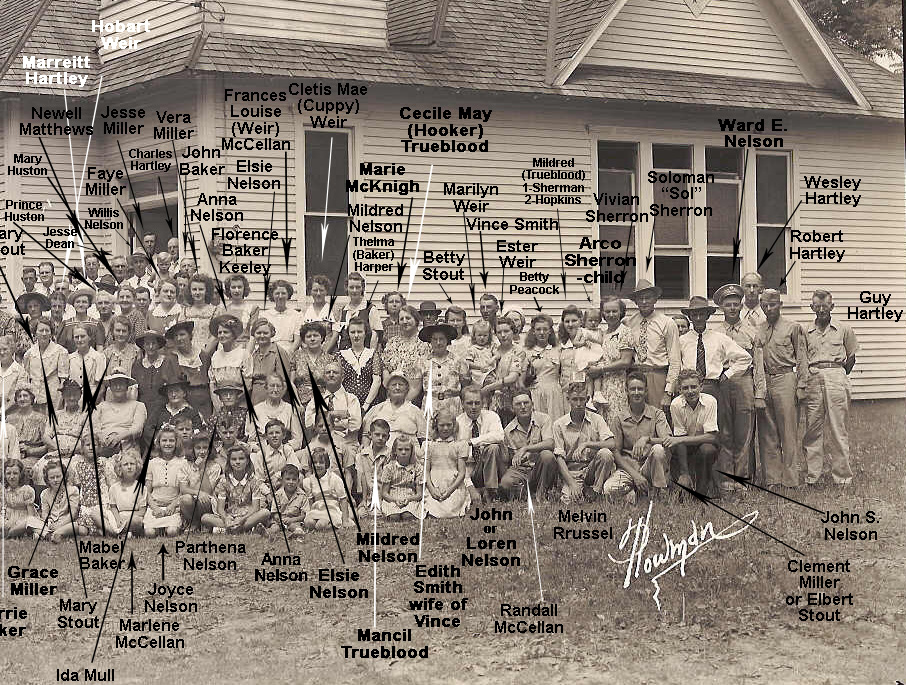 Hobart
Weir
Marreitt
Hartley
Newell
Matthews
Jesse
Miller
Vera
Miller
Frances
Louise
(Weir)
McCellan
Cletis Mae
(Cuppy)
Weir
Cecile May
(Hooker)
Trueblood
Ward E.
Nelson
Mary
Huston
Faye
Miller
Charles
Hartley
John
Baker
Elsie
Nelson
Marie
McKnigh
Marilyn
Weir
Mildred
(Trueblood)
1-Sherman
2-Hopkins
Vivian
Sherron
Soloman
"Sol"
Sherron
Wesley
Hartley
Prince
Huston
Jesse
Dean
Willis
Nelson
Anna
Nelson
Florence
Baker
Keeley
Mildred
Nelson
Thelma
(Baker)
Harper
Vince Smith
Betty
Stout
Ester
Weir
Betty
Peacock
Arco
Sherron
-child
Robert
Hartley
Guy
Hartley
ary
out
Grace
Miller
rrie
ker
Mary
Stout
Mabel
Baker
Parthena
Nelson
Joyce
Nelson
Marlene
McCellan
Ida Mull
Anna
Nelson
Elsie
Nelson
Mildred
Nelson
Mancil
Trueblood
Edith
Smith
wife of
Vince
John
or
Loren
Nelson
Randall
McCellan
Melvin
Rrussel
Howman
John S.
Nelson
Clement
Miller
or Elbert
Stout